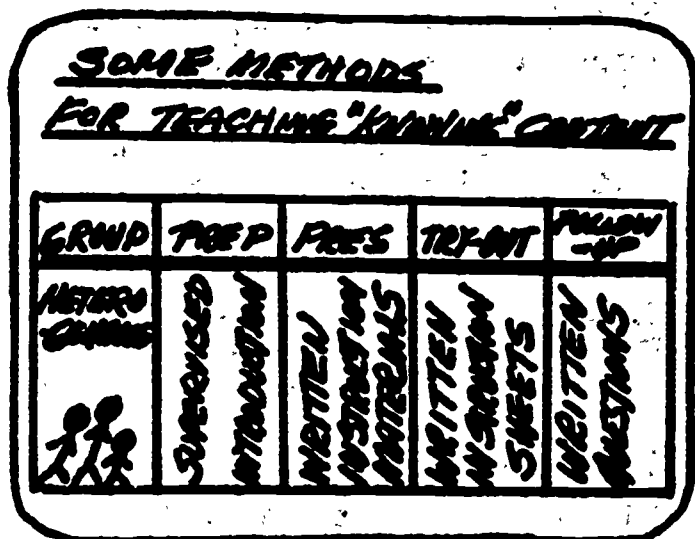 SOME METHODS
FOR TEACHING "KNOWING" CONTENT
GROUP PREP PRES TRY-OUT FOLLOW
-UP
HETERO
-GENEOUS
SUPERVISED
INTRODUCTION
WRITTEN
INSTRUCTION
MATERIALS
WRITTEN
INSTRUCTION
SHEETS
WRITTEN
QUESTIONS